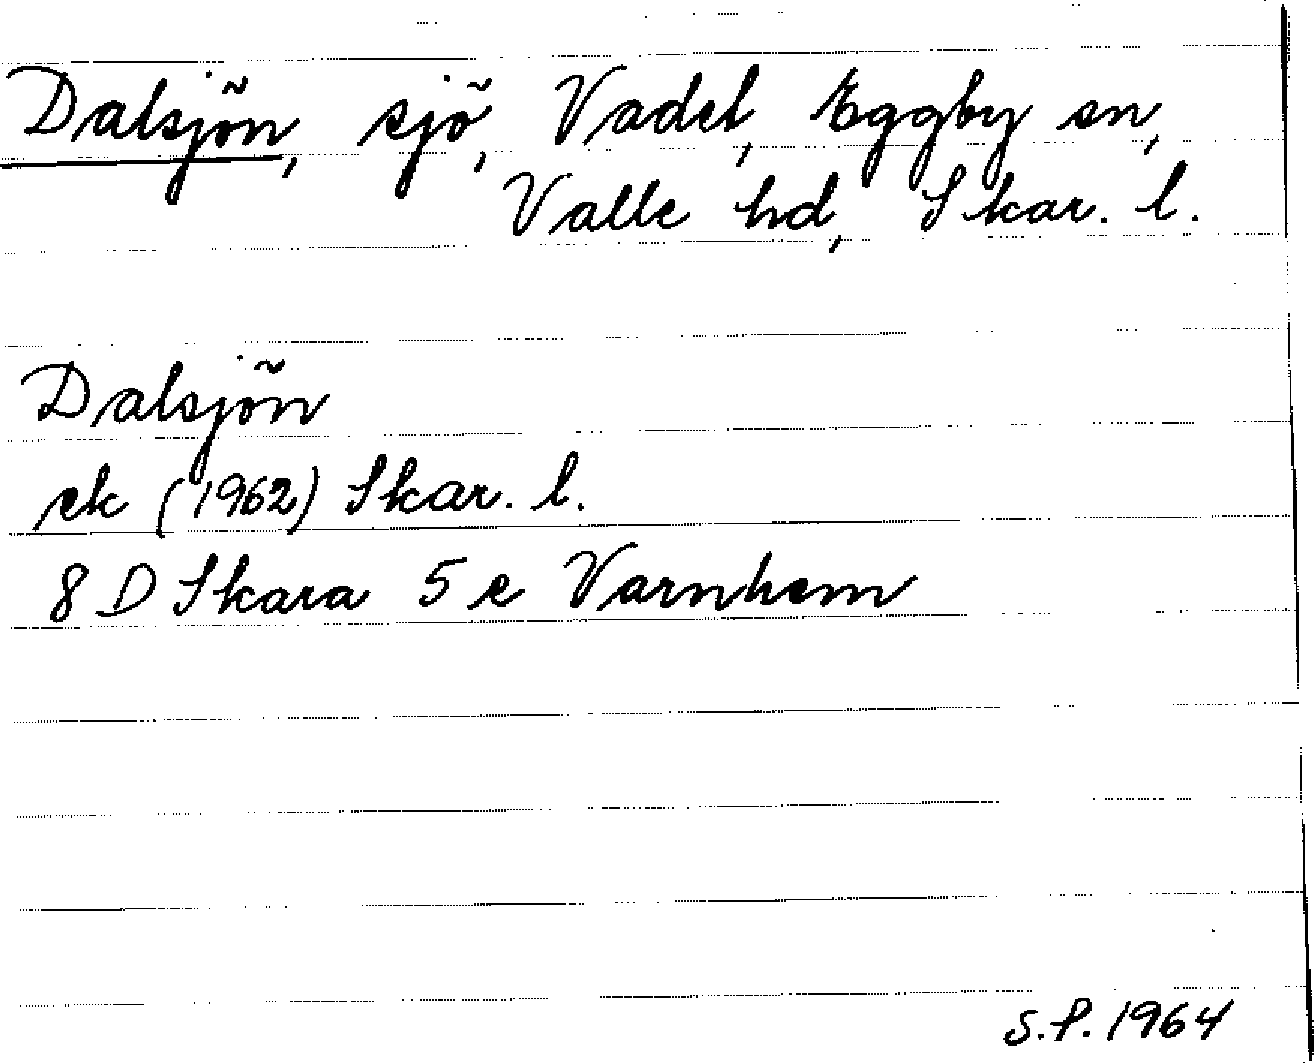 Dalsjön, sjö, Vadet, Eggby sn,
Valle hd, Skar. l.
Dalsjön
ek (1962) Skar. l.
8 D Skara 5 e Varnhem
S.P. 1964